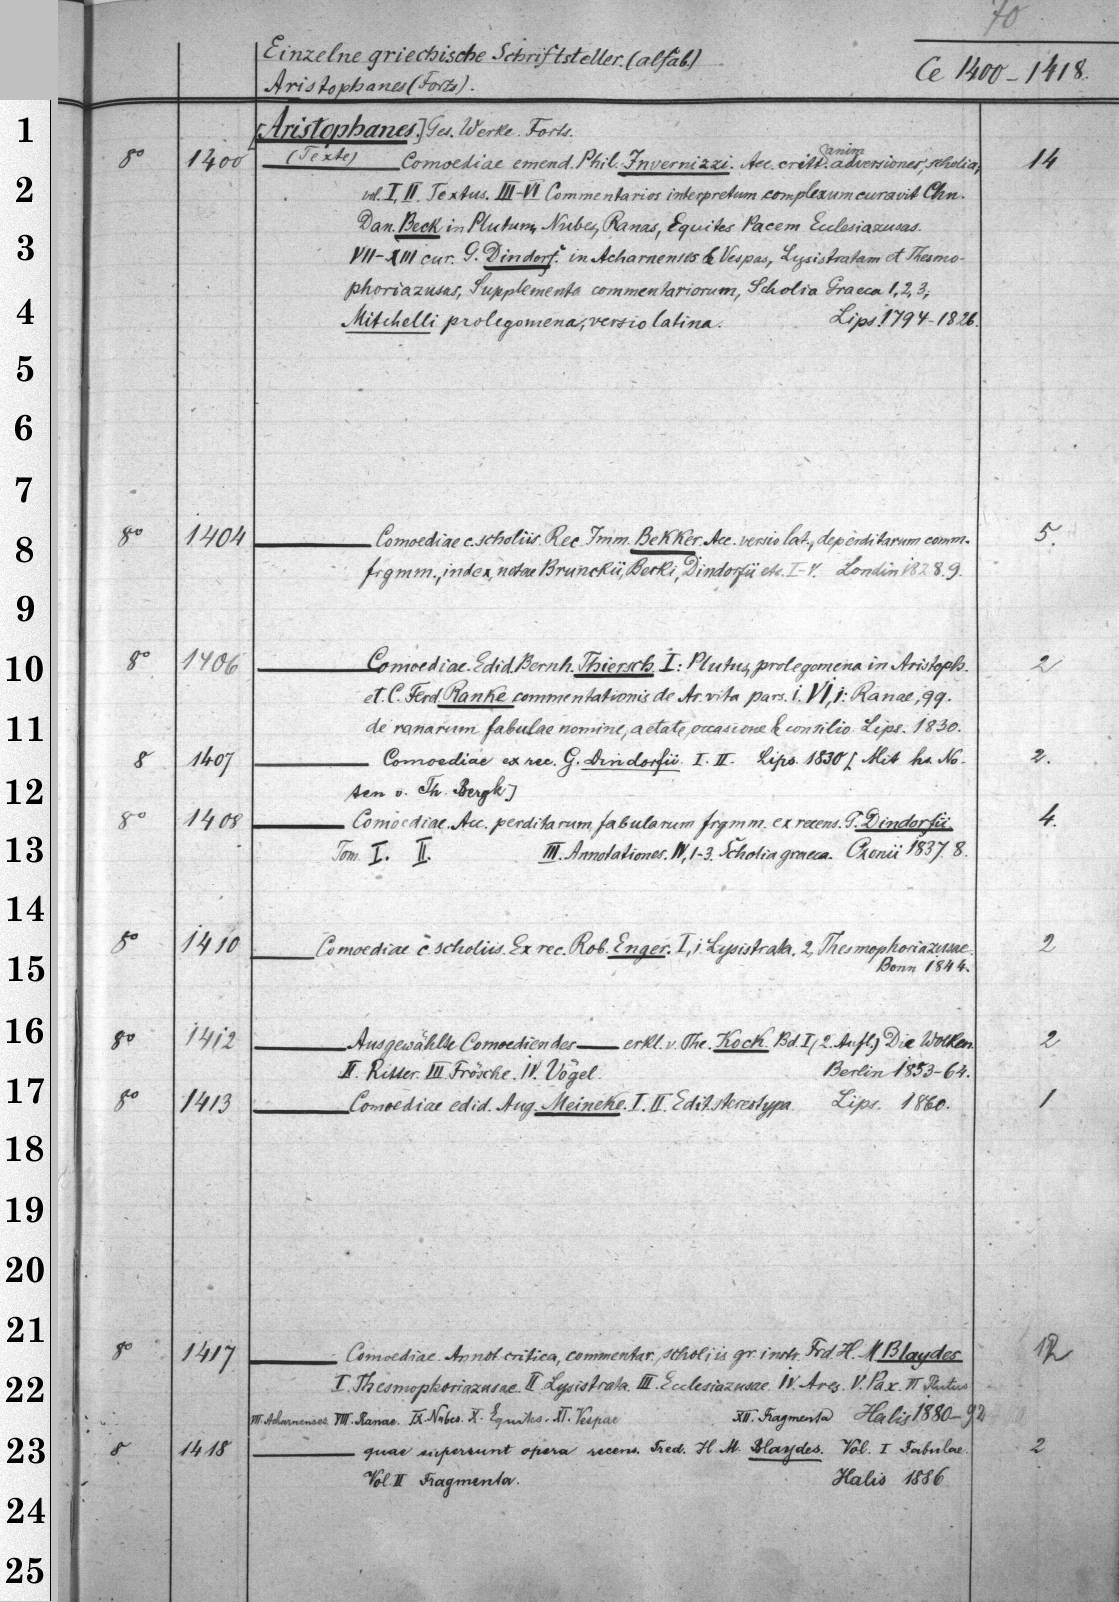 70
Einzelne griechische Schriftsteller. (alfab.)
Ce 1400-1418.
Aristophanes (Forts).
1
[Aristophanes.] Ges. Werke. Forts.
8° 1400 (Texte) Comoediae emend. Phil. Invernizzi. Acc. crit. animadversiones, scholia, 14
2
vol. I, II. Textus. III-VI Commentarios interpretum complexum curavit Chn.
Dan. Beck in Plutum, Nubes, Ranas, Equites Pacem Ecclesiazusas.
3
VII-XIII cur. G. Dindorf. in Acharnenses & Vespas, Lysistratam et Thesmo-
phoriazusas, Supplementa commentariorum, Scholia Graeca 1, 2, 3,
4
Mitchelli prolegomena, versio latina. Lips. 1794-1826.
5
6
7
8° 1404 Comoediae c. scholiis. Rec. Imm. Bekker. Acc. versio lat., deperditarum comm. 5.
8
frgmm., index, notae Brunckii, Becki, Dindorfii etc. I-V. Londin 1828.9.
9
10
8° 1406 Comoediae. Edid. Bernh. Thiersch I: Plutus, prolegomena in Aristoph. 2
et C. Ferd. Ranke commentationis de Ar. vita pars. i. VI, i: Ranae, qq.
11
de ranarum fabulae nomine, aetate, occasione & consilio. Lips. 1830.
8 1407 Comoediae ex rec. G. Dindorfii I. II. Lips. 1830 [Mit hs. No- 2.
12
ten v. Th. Bergk]
8° 1408 Comoediae. Acc. perditarum fabularum frgmm. ex recens. G. Dindorfii 4.
13
Tom. I. II. III. Annotationes. IV, 1-3. Scholia graeca. Oxonii 1837. 8.
14
8° 1410 Comoediae c scholiis. Ex rec. Rob. Enger. I, i Lysistrata. 2, Thesmophoriazusae. 2
15
Bonn 1844.
16
8° 1412 Ausgewählte Comoedien des erkl. v. The. Kock. Bd. I, (2. Aufl.) Die Wolken. 2
II. Ritter. III Frösche. IV. Vögel. Berlin 1853-64.
17
8° 1413 Comoediae edid. Aug. Meineke. I. II. Edit. stereotypa Lips. 1860. 1
18
19
20
21
8° 1417 Comoediae. Annot. critica, commentar., scholiis gr. instr. Frd. H. M Blaydes 12
22
I. Thesmophoriazusae. II Lysistrata. III. Ecclesiazusae. IV. Aves. V. Pax. VI Plutus
VII. Acharnenses. VIII. Ranae. IX Nubes. X. Equites. XI. Vespae XII. Fragmenta Halis 1880-92
23
8 1418 quae supersunt opera recens. Fred. H. M. Blaydes. Vol. I Fabulae. 2
Vol. II Fragmenta. Halis 1886
24
25